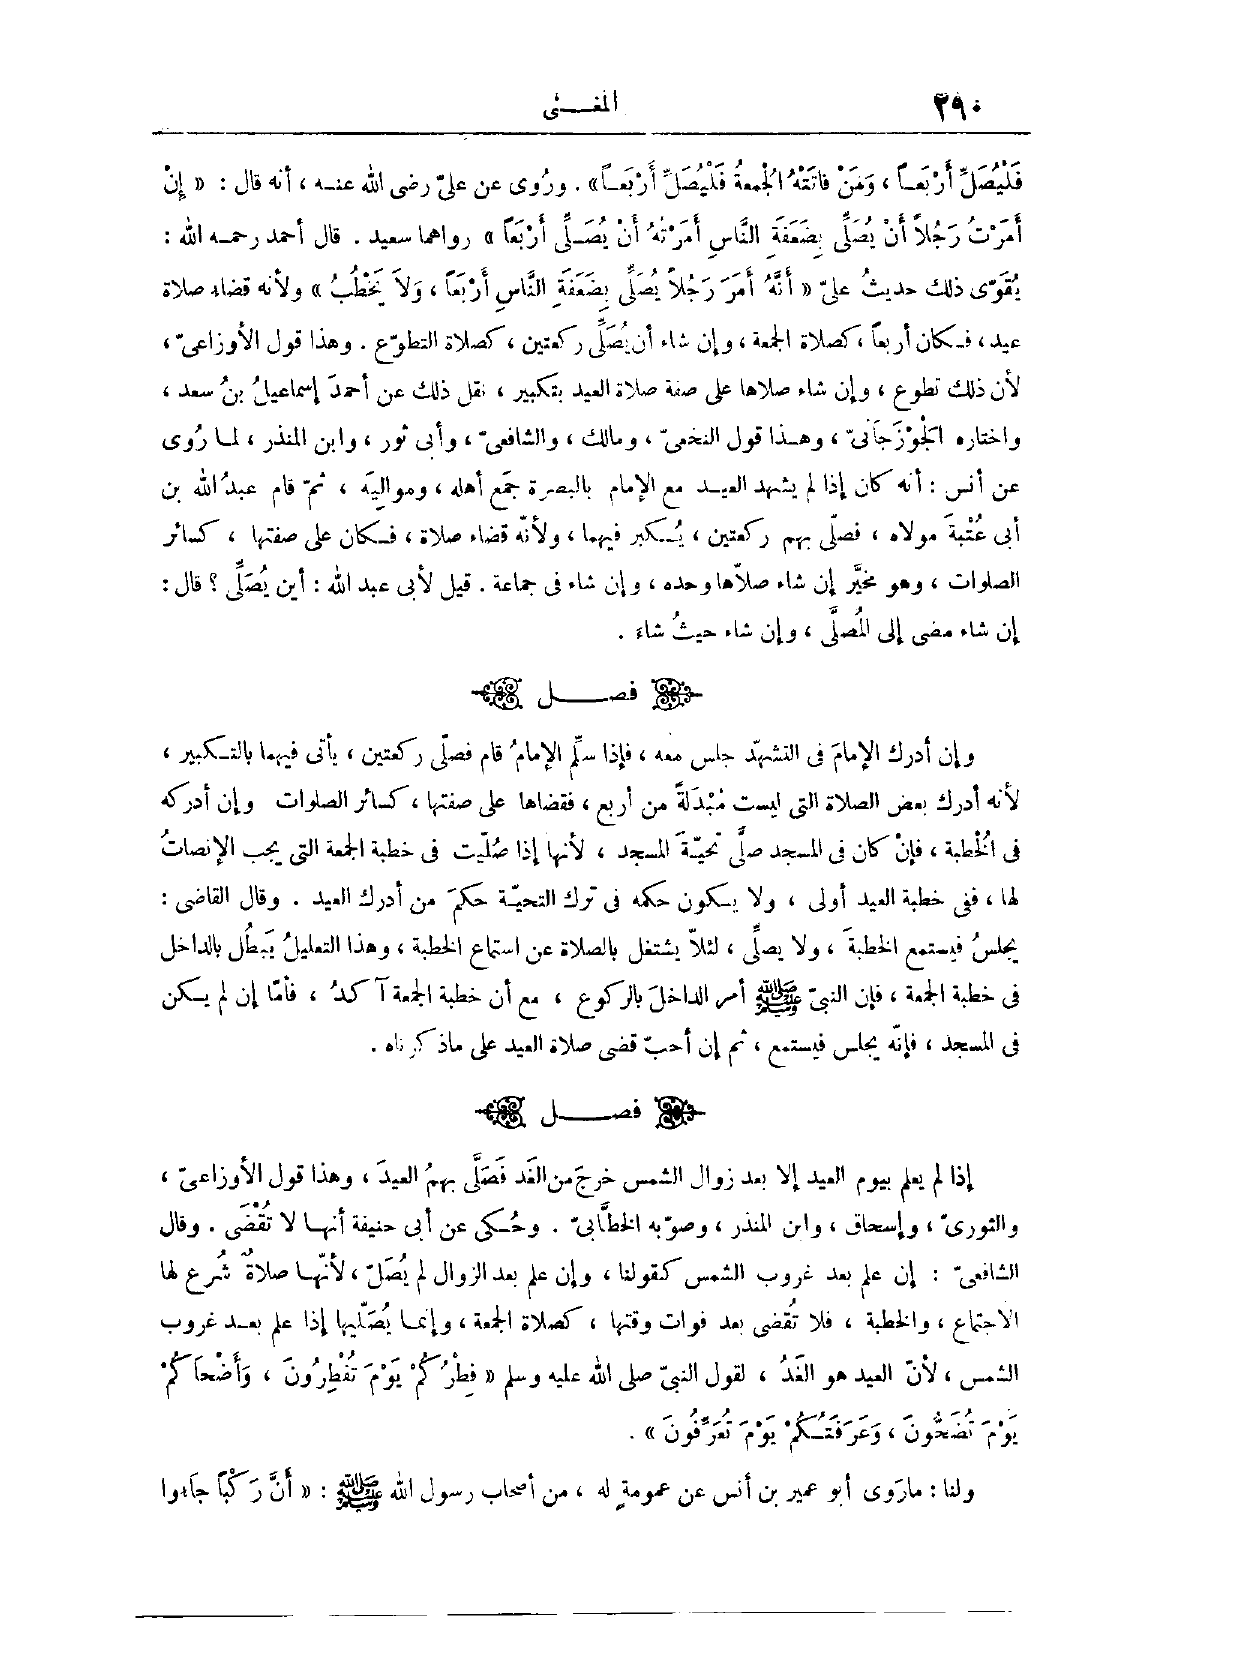 ٢٩٠
المغـــنى
فَلْيُصَلِّ أَرْبَعـاً ، وَمَنْ فَاتَتْهُ الْجمعةُ فَلْيُصَلِّ أَرْبَعـاً» . ورُوى عن علىّ رضى الله عنـه ، أنه قال : « إِنْ
أَمَرْتُ رَجُلاً أَنْ يُصَلِّى بِضَعَفَةِ النَّاسِ أَمَرْتهُ أَنْ يُصَـلِّى أَرْبَعاً » رواهما سعيد . قال أحمد رحمـه الله :
يُقَوّى ذلك حديثُ علىّ « أَنَّهُ أَمَرَ رَجُلاً يُصَلِّى بِضَعَفَةِ النَّاسِ أَرْبَعاً ، وَلاَ يَخْطُبُ » ولأنه قضاء صلاة
عيد ، فـكان أربعاً ، كصلاة الجمعة ، وإن شاء أن يُصَلِّى ركعتين ، كصلاة التطوّع . وهذا قول الأوزاعىّ ،
لأن ذلك تطوع ، وإن شاء صلاها على صفة صلاة العيد بتكبير ، نقل ذلك عن أحمدَ إسماعيلُ بنُ سعد ،
واختاره الْجُوْزَجَانىّ ، وهـذا قول النخعىّ ، ومالك ، والشافعىّ ، وأبى ثور ، وابن المنذر ، لمـا رُوى
عن أنس : أنه كان إذا لم يشهد العيـد مع الإمام بالبصرة جمَع أهله ، ومواليَه ، ثمّ قام عبدُ الله بن
أبى عُتْبةَ مولاه ، فصلّى بهم ركعتين ، يُـكبر فيهما ، ولأنّه قضاء صلاة ، فـكان على صفتها ، كسائر
الصلوات ، وهو مخيَّر إن شاء صلاّها وحده ، وإن شاء فى جماعة . قيل لأبى عبد الله : أين يُصَلِّى ؟ قال :
إن شاء مضى إلى المُصلَّى ، وإن شاء حيثُ شاءَ .
فصـــل
وإن أدرك الإمامَ فى التشهّد جلس معه ، فإذا سلّم الإمامُ قام فصلّى ركعتين ، يأتى فيهما بالتـكبير ،
لأنه أدرك بعض الصلاة التى ليست مُبْدَلَةً من أربع ، فقضاها على صفتها ، كسائر الصلوات وإن أدركه
فى الْخُطبة ، فإنْ كان فى المسجد صلَّى تحيّةَ المسجد ، لأنها إذا صُلّيت فى خطبة الجمعة التى يجب الإنصاتُ
لها ، ففى خطبة العيد أولى ، ولا يـكون حكمه فى ترك التحيّة حكمَ من أدرك العيد . وقال القاضى :
يجلسُ فيستمع الخطبةَ ، ولا يصلِّى ، لئلاّ يشتغل بالصلاة عن استماع الخطبة ، وهذا التعليلُ يَبطُل بالداخل
فى خطبة الجمعة ، فإن النبىّ ﷺ أمر الداخلَ بالركوع ، مع أن خطبة الجمعة آكدُ ، فأمّا إن لم يـكن
فى المسجد ، فإنّه يجلس فيستمع ، ثم إن أحبّ قضى صلاة العيد على ماذكرناه .
فصـــل
إذا لم يعلم بيوم العيد إلا بعد زوال الشمس خرجَ من الغَد فَصَلَّى بهمُ العيدَ ، وهذا قول الأوزاعىّ ،
والثورىّ ، وإسحاق ، وابن المنذر ، وصوّبه الخطَّابىّ . وحُـكى عن أبى حنيفة أنهـا لا تُقْضَى . وقال
الشافعىّ : إن علم بعد غروب الشمس كـقولنا ، وإن علم بعد الزوال لم يُصَلّ ، لأنّهـا صلاةٌ شُرع لها
الاجتماع ، والخطبة ، فلا تُقضى بعد فوات وقتها ، كصلاة الجمعة ، وإنمـا يُصَلّيها إذا علم بعـد غروب
الشمس ، لأنّ العيد هو الغَدُ ، لقول النبىّ صلى الله عليه وسلم « فِطْرُكُمْ يَوْمَ تُفْطِرُونَ ، وَأَضْحاَكُمْ
يَوْمَ تُضَحُّونَ ، وَعَرَفَتُـكُمْ يَوْمَ تُعَرِّفُونَ » .
ولنا : مارَوى أبو عمير بن أنس عن عمومةٍ له ، من أصحاب رسول الله ﷺ : « أَنَّ رَكْباً جاَءوا